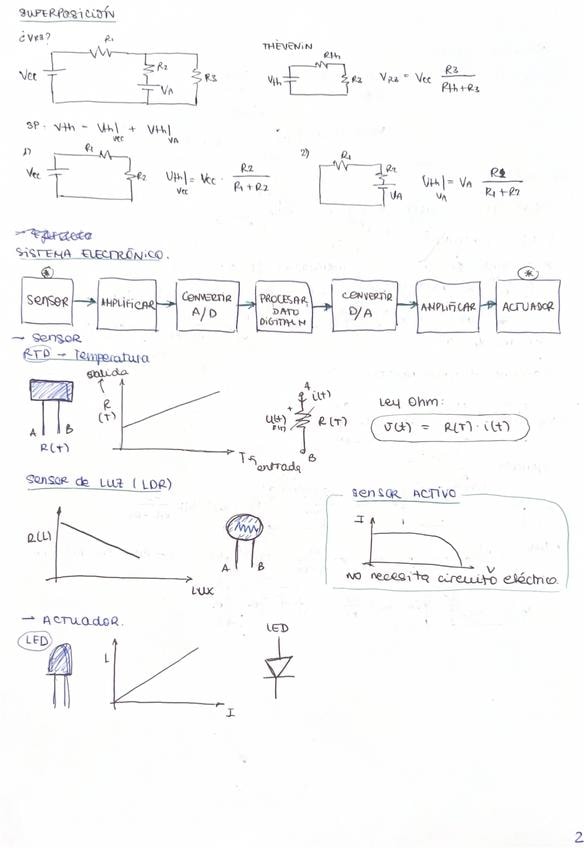 SUPERPOSICIÓN
¿VR3?
R1
R2
R3
Vcc
VA
THÉVENIN
Rth
Vth
R3
VR3 = Vcc R3 / Rth + R3
SP: Vth - Vth|Vcc + Vth|VA
1)
R1
Vcc
R2
Vth|Vcc = Vcc · R2 / R1 + R2
2)
R1
R2
VA
Vth|VA = VA R1 / R1 + R2
SISTEMA ELECTRÓNICO.
* *
SENSOR
AMPLIFICAR
CONVERTIR A/D
PROCESAR DATO DIGITALM
CONVERTIR D/A
AMPLIFICAR
ACTUADOR
- SENSOR
RTD - Temperatura
salida
R (T)
A B
R(T)
T
entrada
A
i(t)
+
R(T)
B
Ley Ohm:
v(t) = R(T) · i(t)
Sensor de LUZ (LDR)
R(L)
LUX
A B
SENSOR ACTIVO
I
V
No necesita circuito eléctrico.
- ACTUADOR.
LED
L
I
LED
2